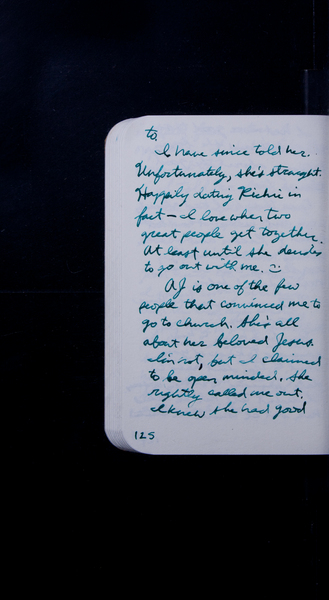 to.
I have since told her.
Unfortunately, she's straight.
Happily dating Richie in
fact — I love when two
great people get together.
At least until she decides
to go out with me. :)
AJ is one of the few
people that convinced me to
go to church. She's all
about her beloved Jesus.
I'm not, but I claimed
to be open minded. She
rightly called me out.
I knew she had good
125